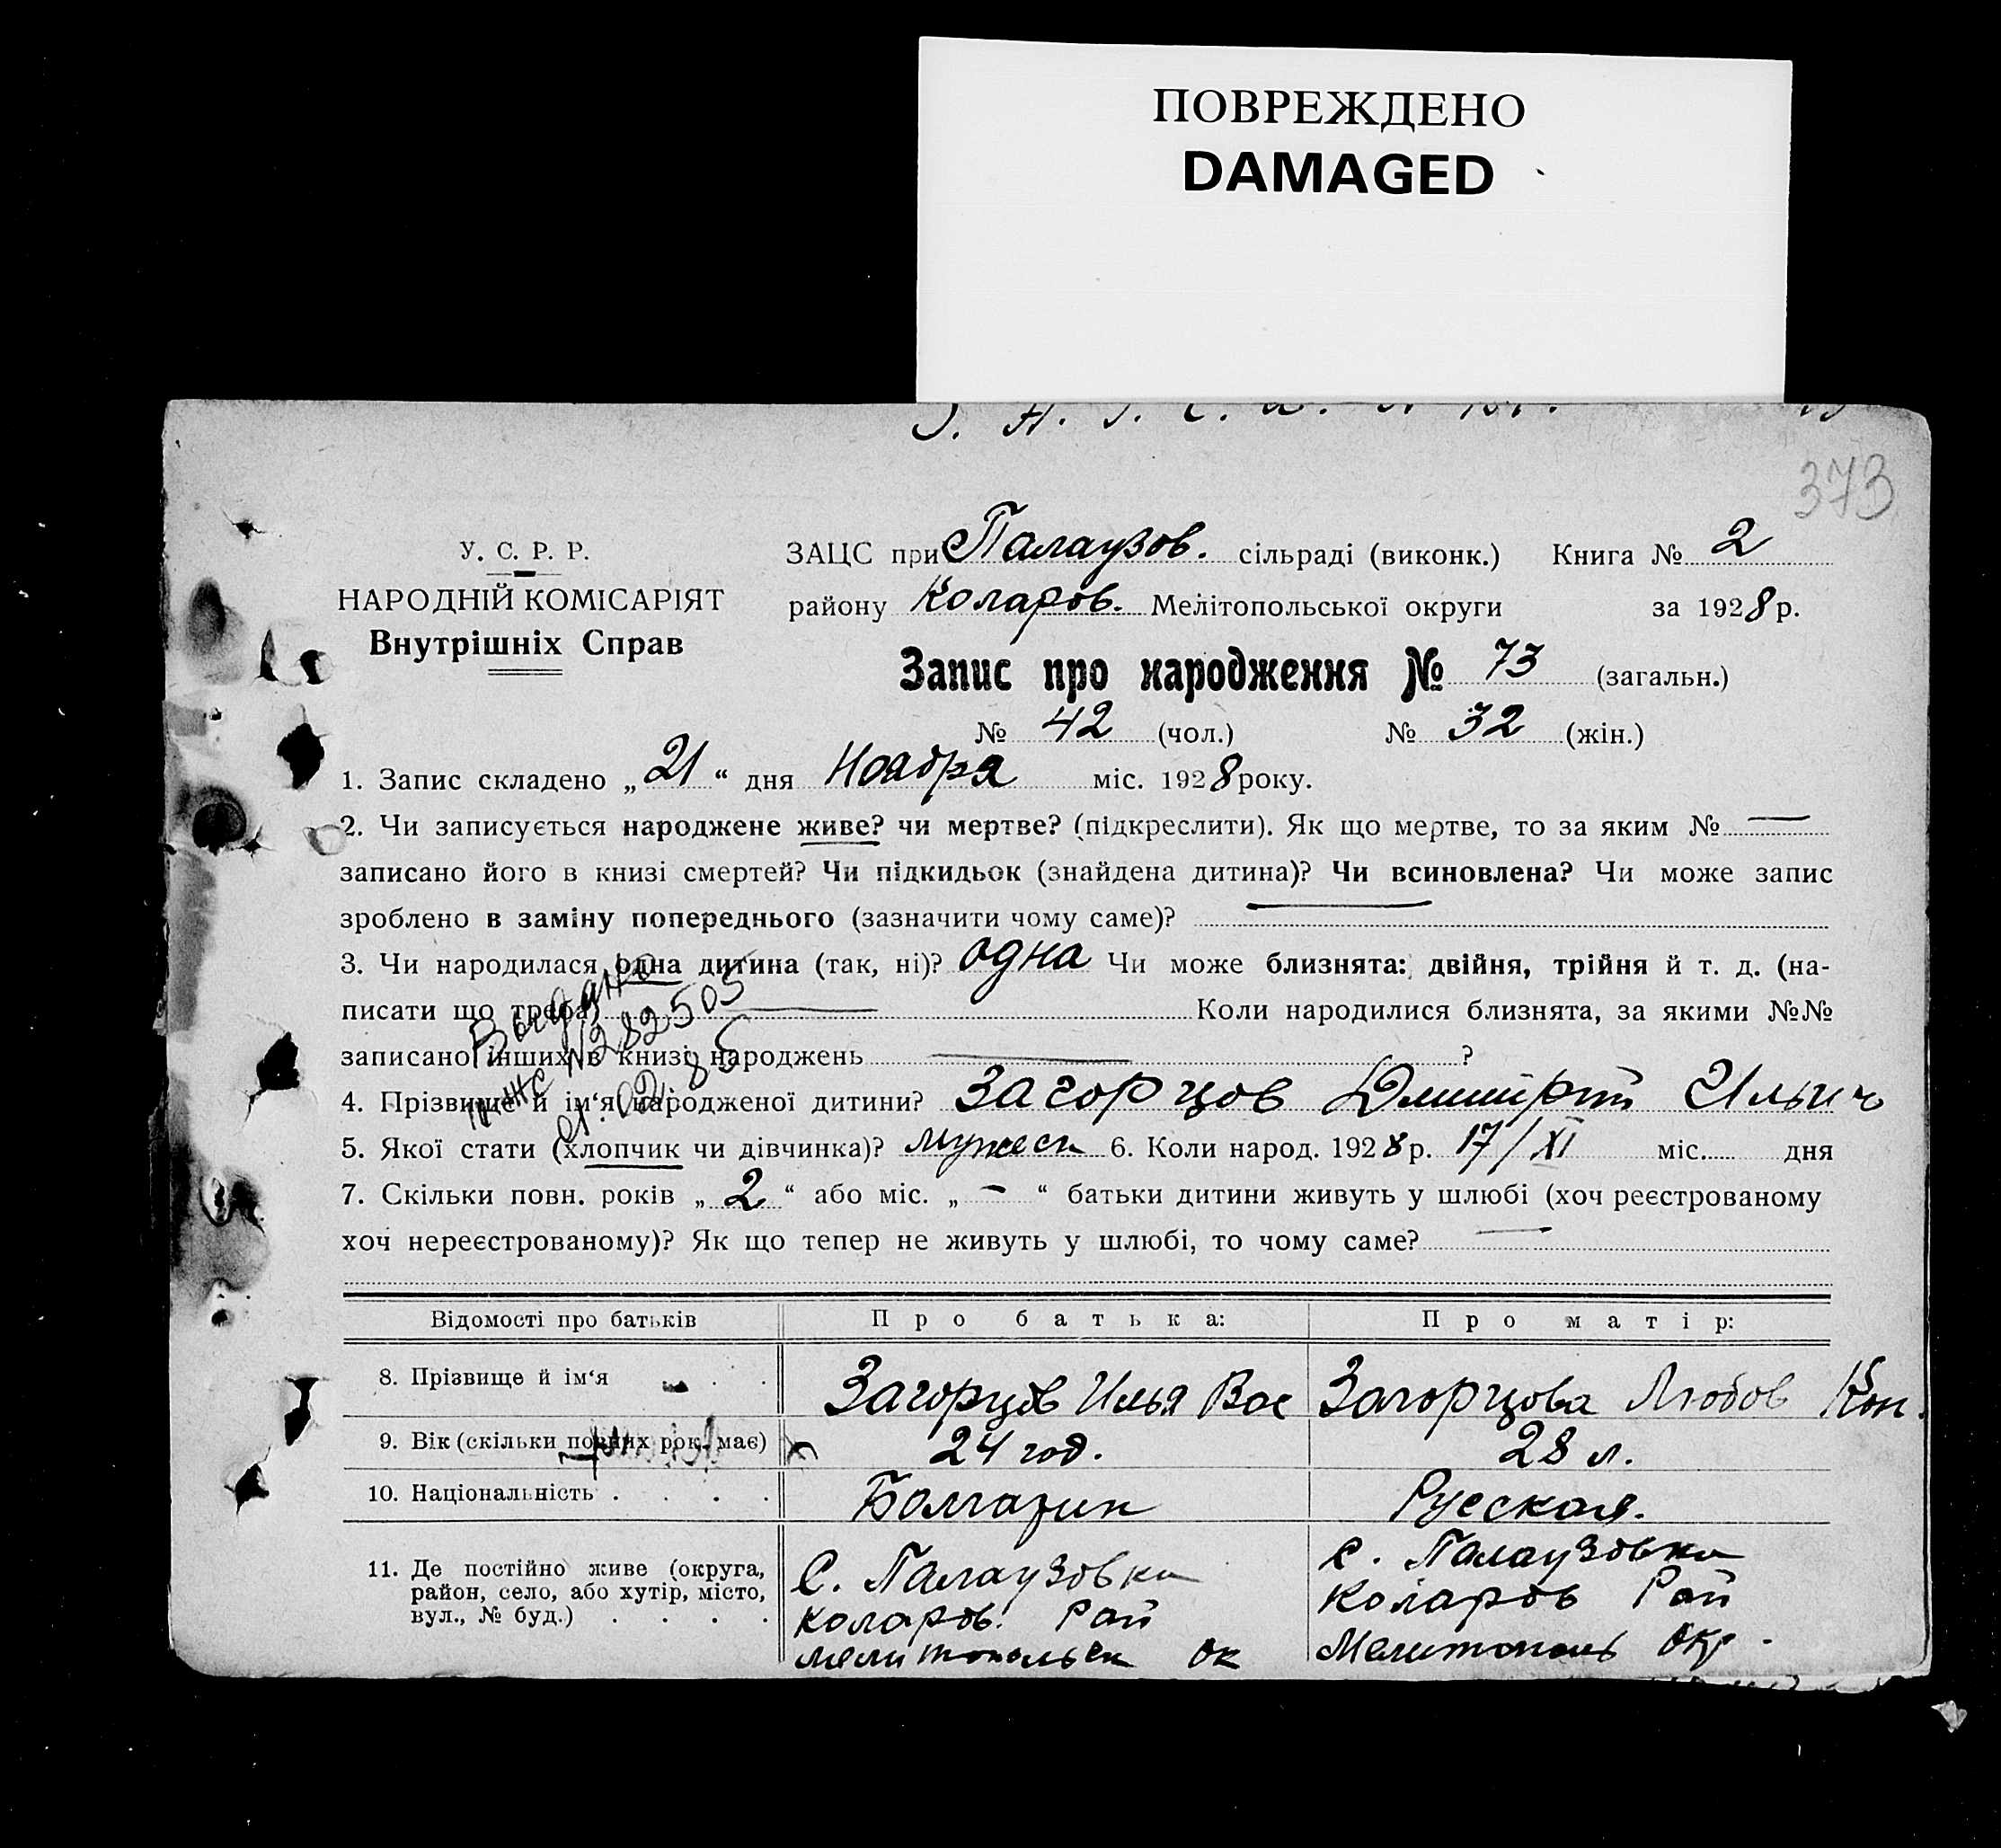 ПОВРЕЖДЕНО
DAMAGED
373
У. С. Р. Р.
НАРОДНІЙ КОМІСАРІЯТ
Внутрішніх Справ
ЗАЦС при Палаузов. сільраді (виконк.) Книга № 2
району Коларов. Мелітопольської округи за 1928 р.
Запис про народження № 73 (загальн.)
№ 42 (чол.) № 32 (жін.)
1. Запис складено „21“ дня Ноября міс. 1928 року.
2. Чи записується народжене живе? чи мертве? (підкреслити). Як що мертве, то за яким № —
записано його в книзі смертей? Чи підкидьок (знайдена дитина)? Чи всиновлена? Чи може запис
зроблено в заміну попереднього (зазначити чому саме)? —
3. Чи народилася одна дитина (так, ні)? одна Чи може близнята: двійня, трійня й т. д. (на-
писати що треба) — Коли народилися близнята, за якими №№
записано інших в книзі народжень — ?
Выдано
№ 282505
01.02.85
4. Прізвище й ім‘я народженої дитини? Загорцов Дмитрий Ильич
5. Якої стати (хлопчик чи дівчинка)? мужеск 6. Коли народ. 1928 р. 17/XI міс. дня
7. Скільки повн. років „2“ або міс. „-“ батьки дитини живуть у шлюбі (хоч реєстрованому
хоч нереєстрованому)? Як що тепер не живуть у шлюбі, то чому саме? —
Відомості про батьків Про батька: Про матір:
8. Прізвище й ім‘я Загорцов Илья Вас Загорцова Любов Кон.
9. Вік (скільки повних рок. має) 24 год. 28 л.
10. Національність Болгарин Русская.
11. Де постійно живе (округа, район, село, або хутір, місто, вул., № буд.)
С. Палаузовка
Коларов. Рай
Мелитопольск ок
с. Палаузовка
Коларов Рай
Мелитополь окр.